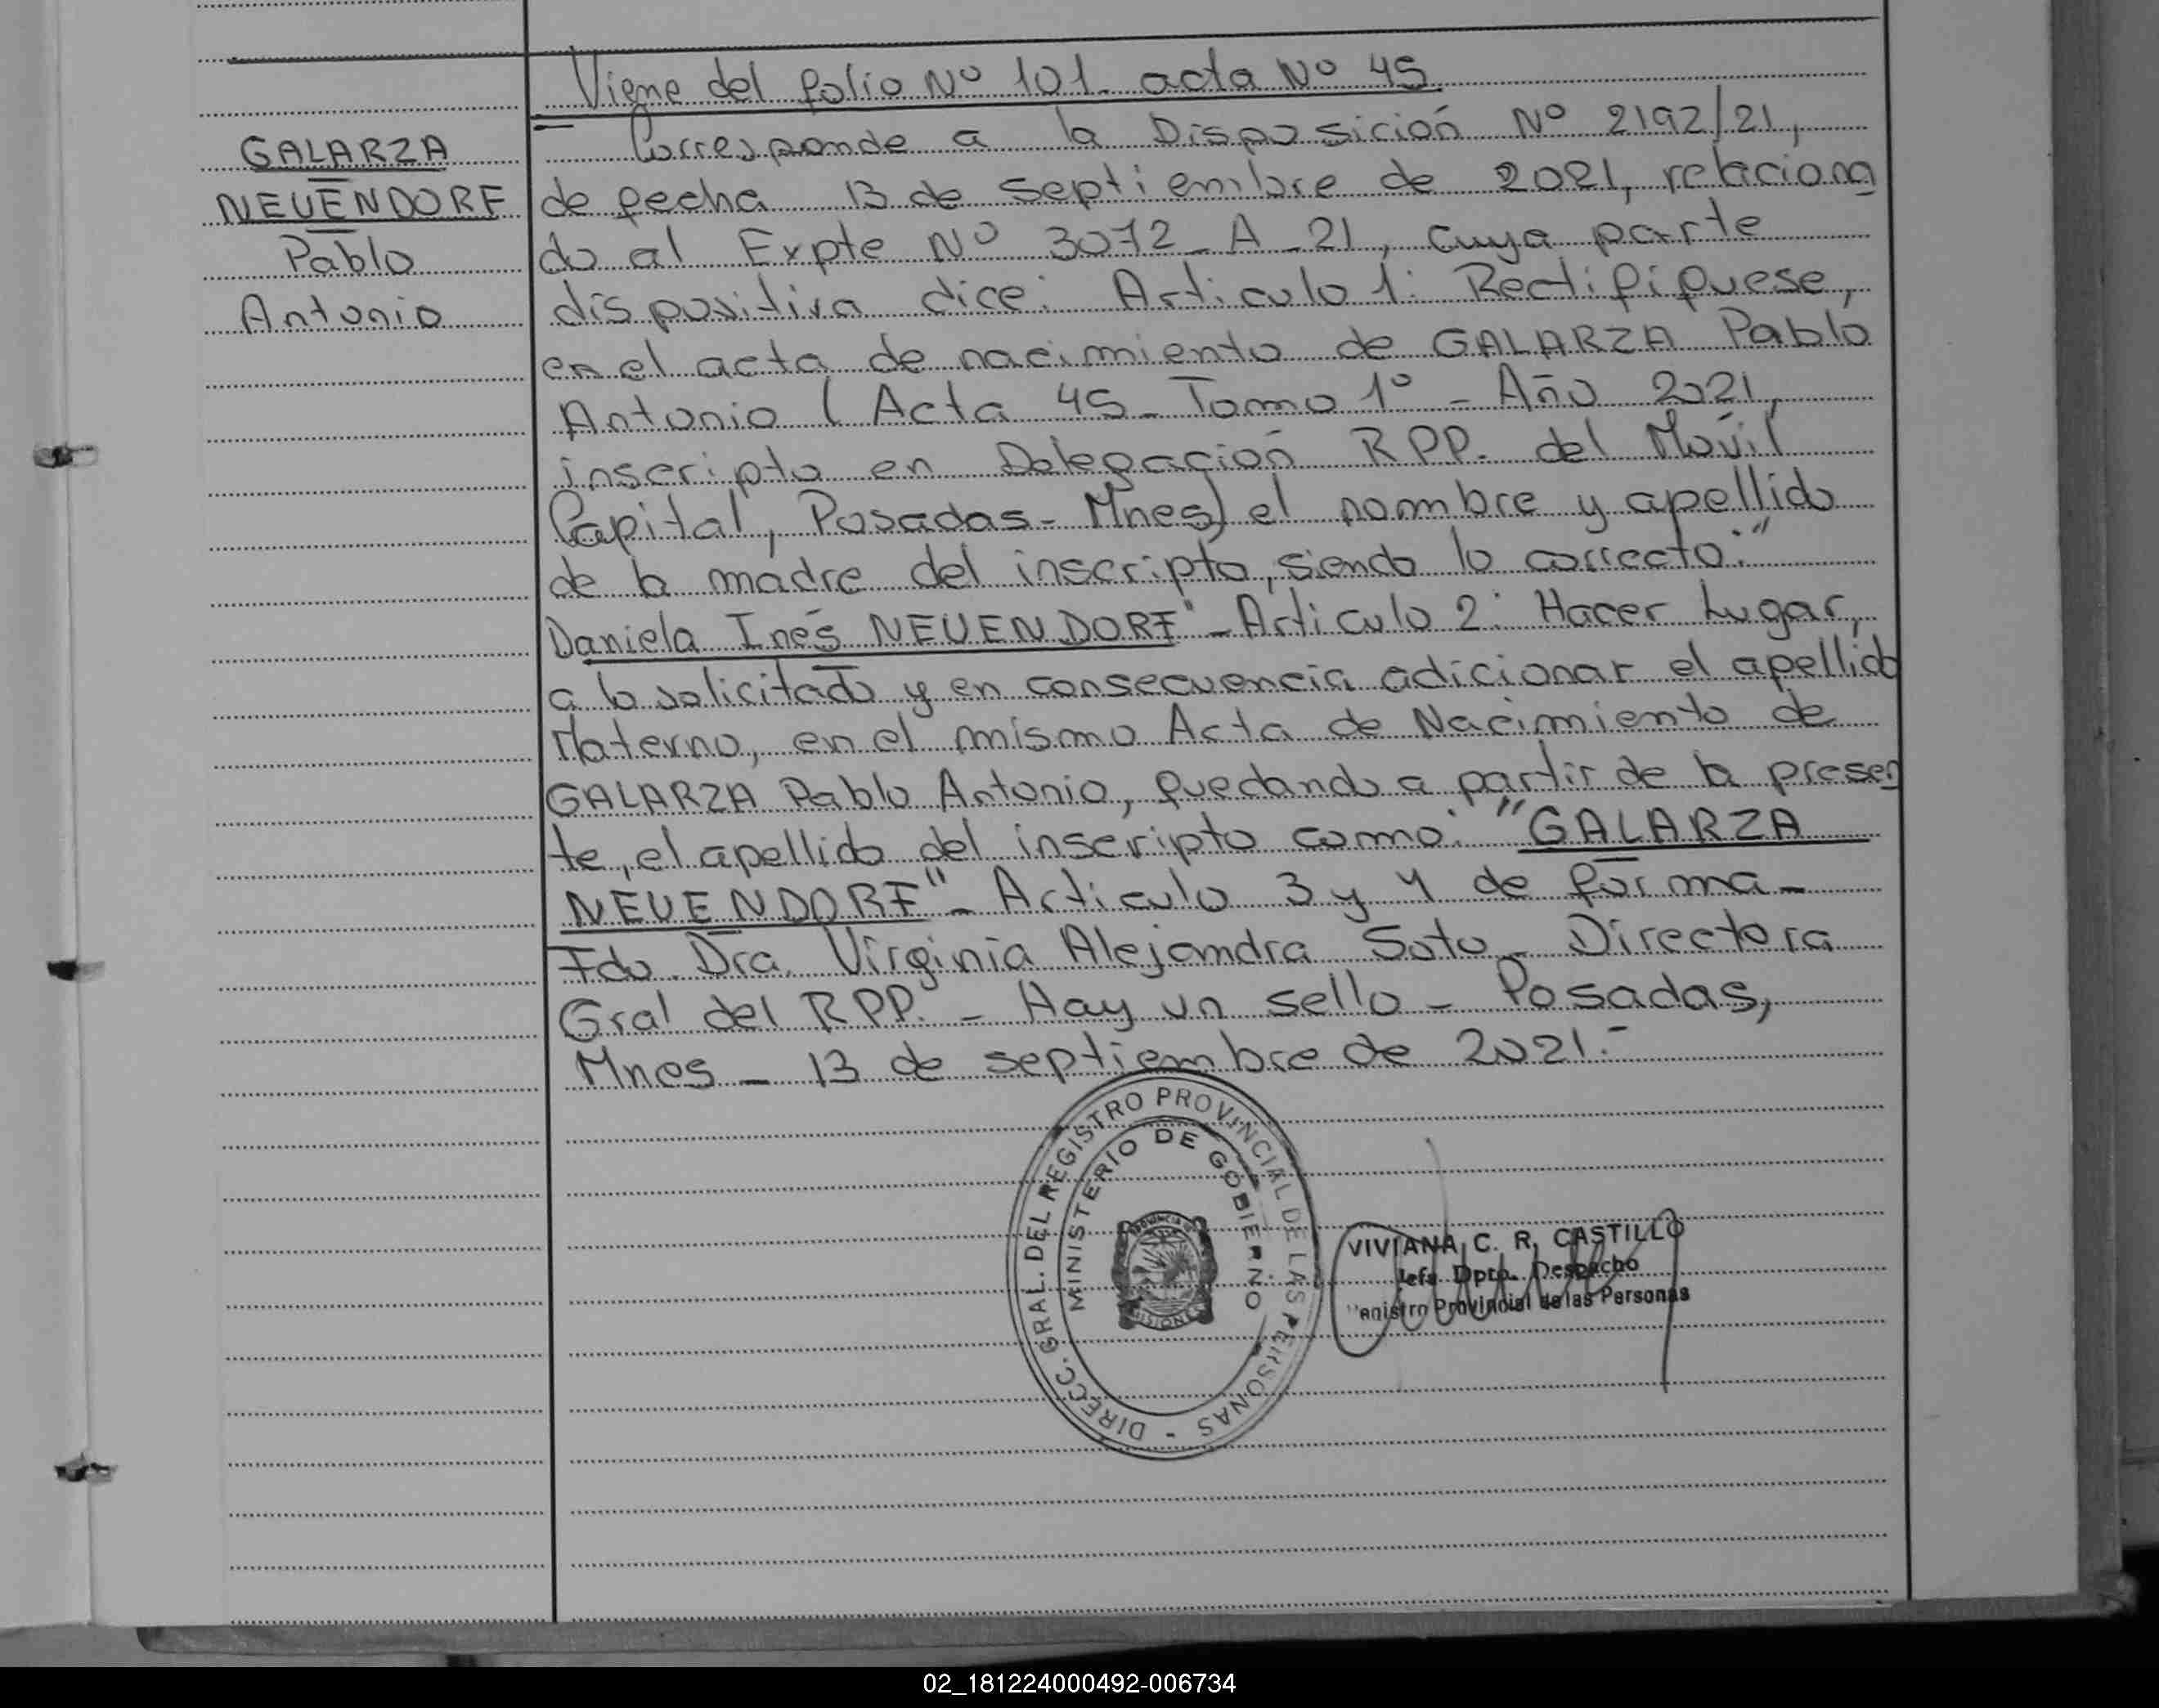 Viene del folio Nº 101. acta Nº 45
GALARZA
NEUENDORF
Pablo
Antonio
Corresponde a la Disposición Nº 2192/21,
de fecha 13 de septiembre de 2021, relaciona
do al Expte Nº 3072-A-21, cuya parte
dispositiva dice: Articulo 1: Rectifiquese,
en el acta de nacimiento de GALARZA Pablo
Antonio (Acta 45- Tomo 1º - Año 2021,
inscripto en Delegación RPP. del Móvil
Capital, Posadas- Mnes) el nombre y apellido
de la madre del inscripto, siendo lo correcto: "
Daniela Inés NEUENDORF" - Articulo 2: Hacer Lugar,
a lo solicitado y en consecuencia adicionar el apellido
Materno, en el mismo Acta de Nacimiento de
GALARZA Pablo Antonio, quedando a partir de la presen
te, el apellido del inscripto como: "GALARZA
NEUENDORF" - Articulo 3 y 4 de forma -
Fdo. Dra. Virginia Alejandra Soto - Directora
Gral del RPP. - Hay un sello - Posadas,
Mnes - 13 de septiembre de 2021.-
DIRECC. GRAL. DEL REGISTRO PROVINCIAL DE LAS PERSONAS -
MINISTERIO DE GOBIERNO
VIVIANA C. R. CASTILLO
Jefa Dpto. Despacho
Registro Provincial de las Personas
02_181224000492-006734